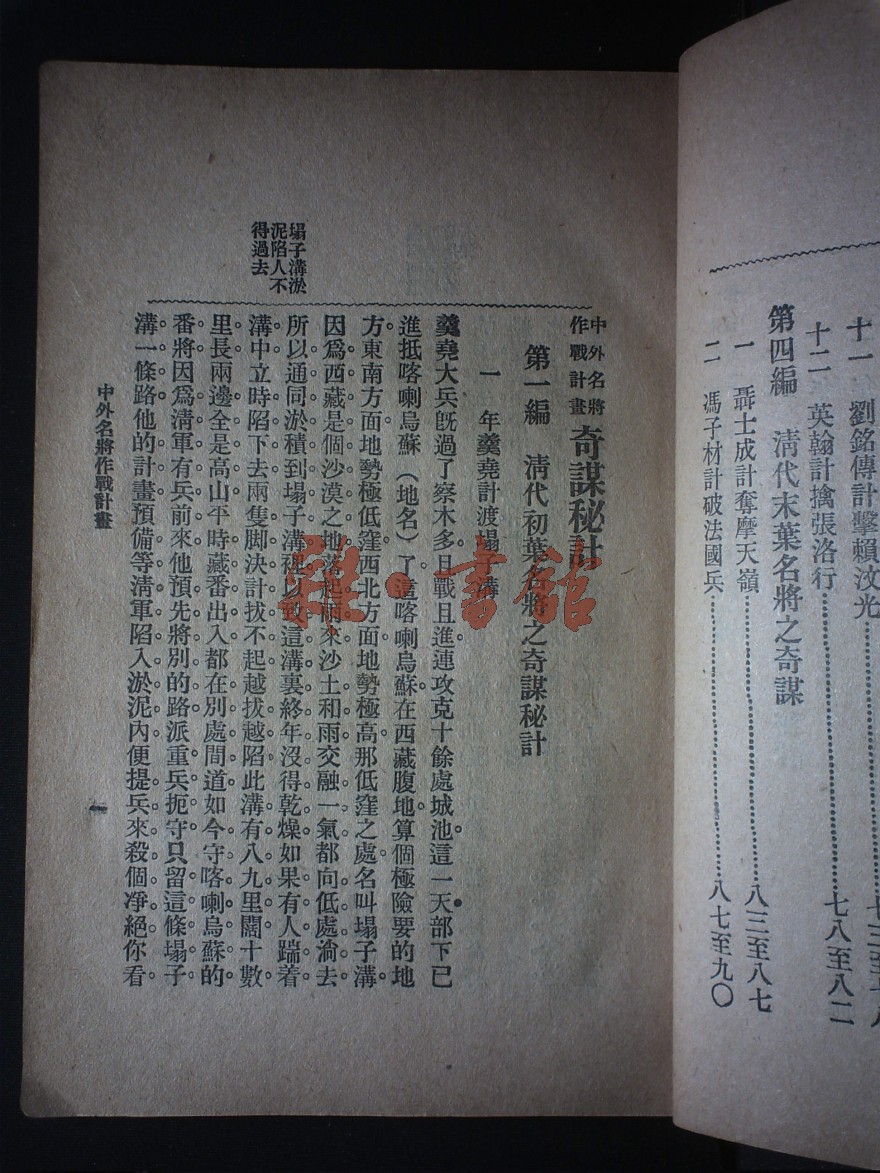 十一　劉銘傳計擊賴汶光
十二　英翰計擒張洛行……七八至八二
第四編　清代末葉名將之奇謀
一　聶士成計奪摩天嶺……八三至八七
二　馮子材計破法國兵……八七至九〇
中外名將
作戰計畫
奇謀秘計
第一編　清代初葉名將之奇謀秘計
一　年羹堯計渡塌子溝
羹堯大兵既過了察木多且戰且進連攻克十餘處城池這一天部下已
進抵喀喇烏蘇（地名）了這喀喇烏蘇在西藏腹地算個極險要的地
方東南方面地勢極低窪西北方面地勢極高那低窪之處名叫塌子溝
因爲西藏是個沙漠之地落起雨來沙土和雨交融一氣都向低處淌去
所以通同淤積到塌子溝裡以致這溝裏終年沒得乾燥如果有人踹着
溝中立時陷下去兩隻脚決計拔不起越拔越陷此溝有八九里闊十數
里長兩邊全是高山平時藏番出入都在別處間道如今守喀喇烏蘇的
番將因爲清軍有兵前來他預先將別的路派重兵扼守只留這條塌子
溝一條路他的計畫預備等清軍陷入淤泥內便提兵來殺個凈絕你看
塌子溝淤
泥陷人不
得過去
中外名將作戰計畫
一
雜·書館